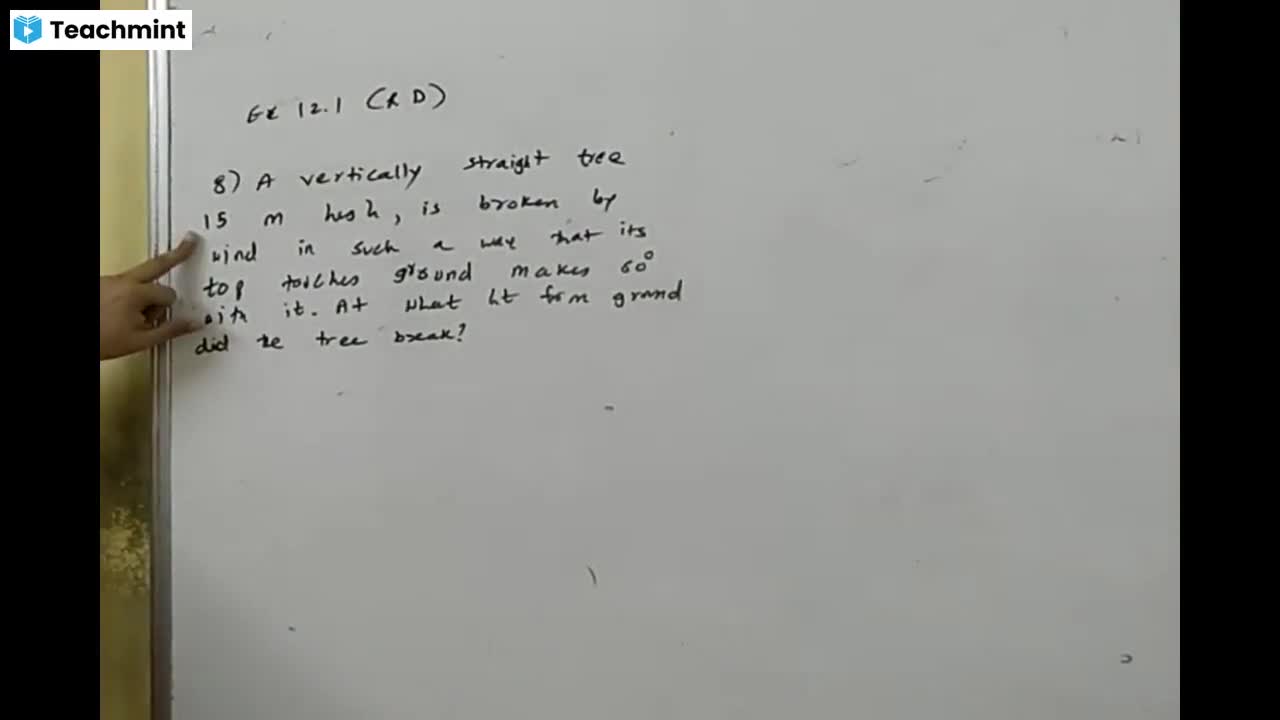 Teachmint
Ex 12.1 (RD)
8) A vertically straight tree
15 m high, is broken by
wind in such a way that its
top touches ground makes 60°
with it. At what ht from ground
did the tree break?